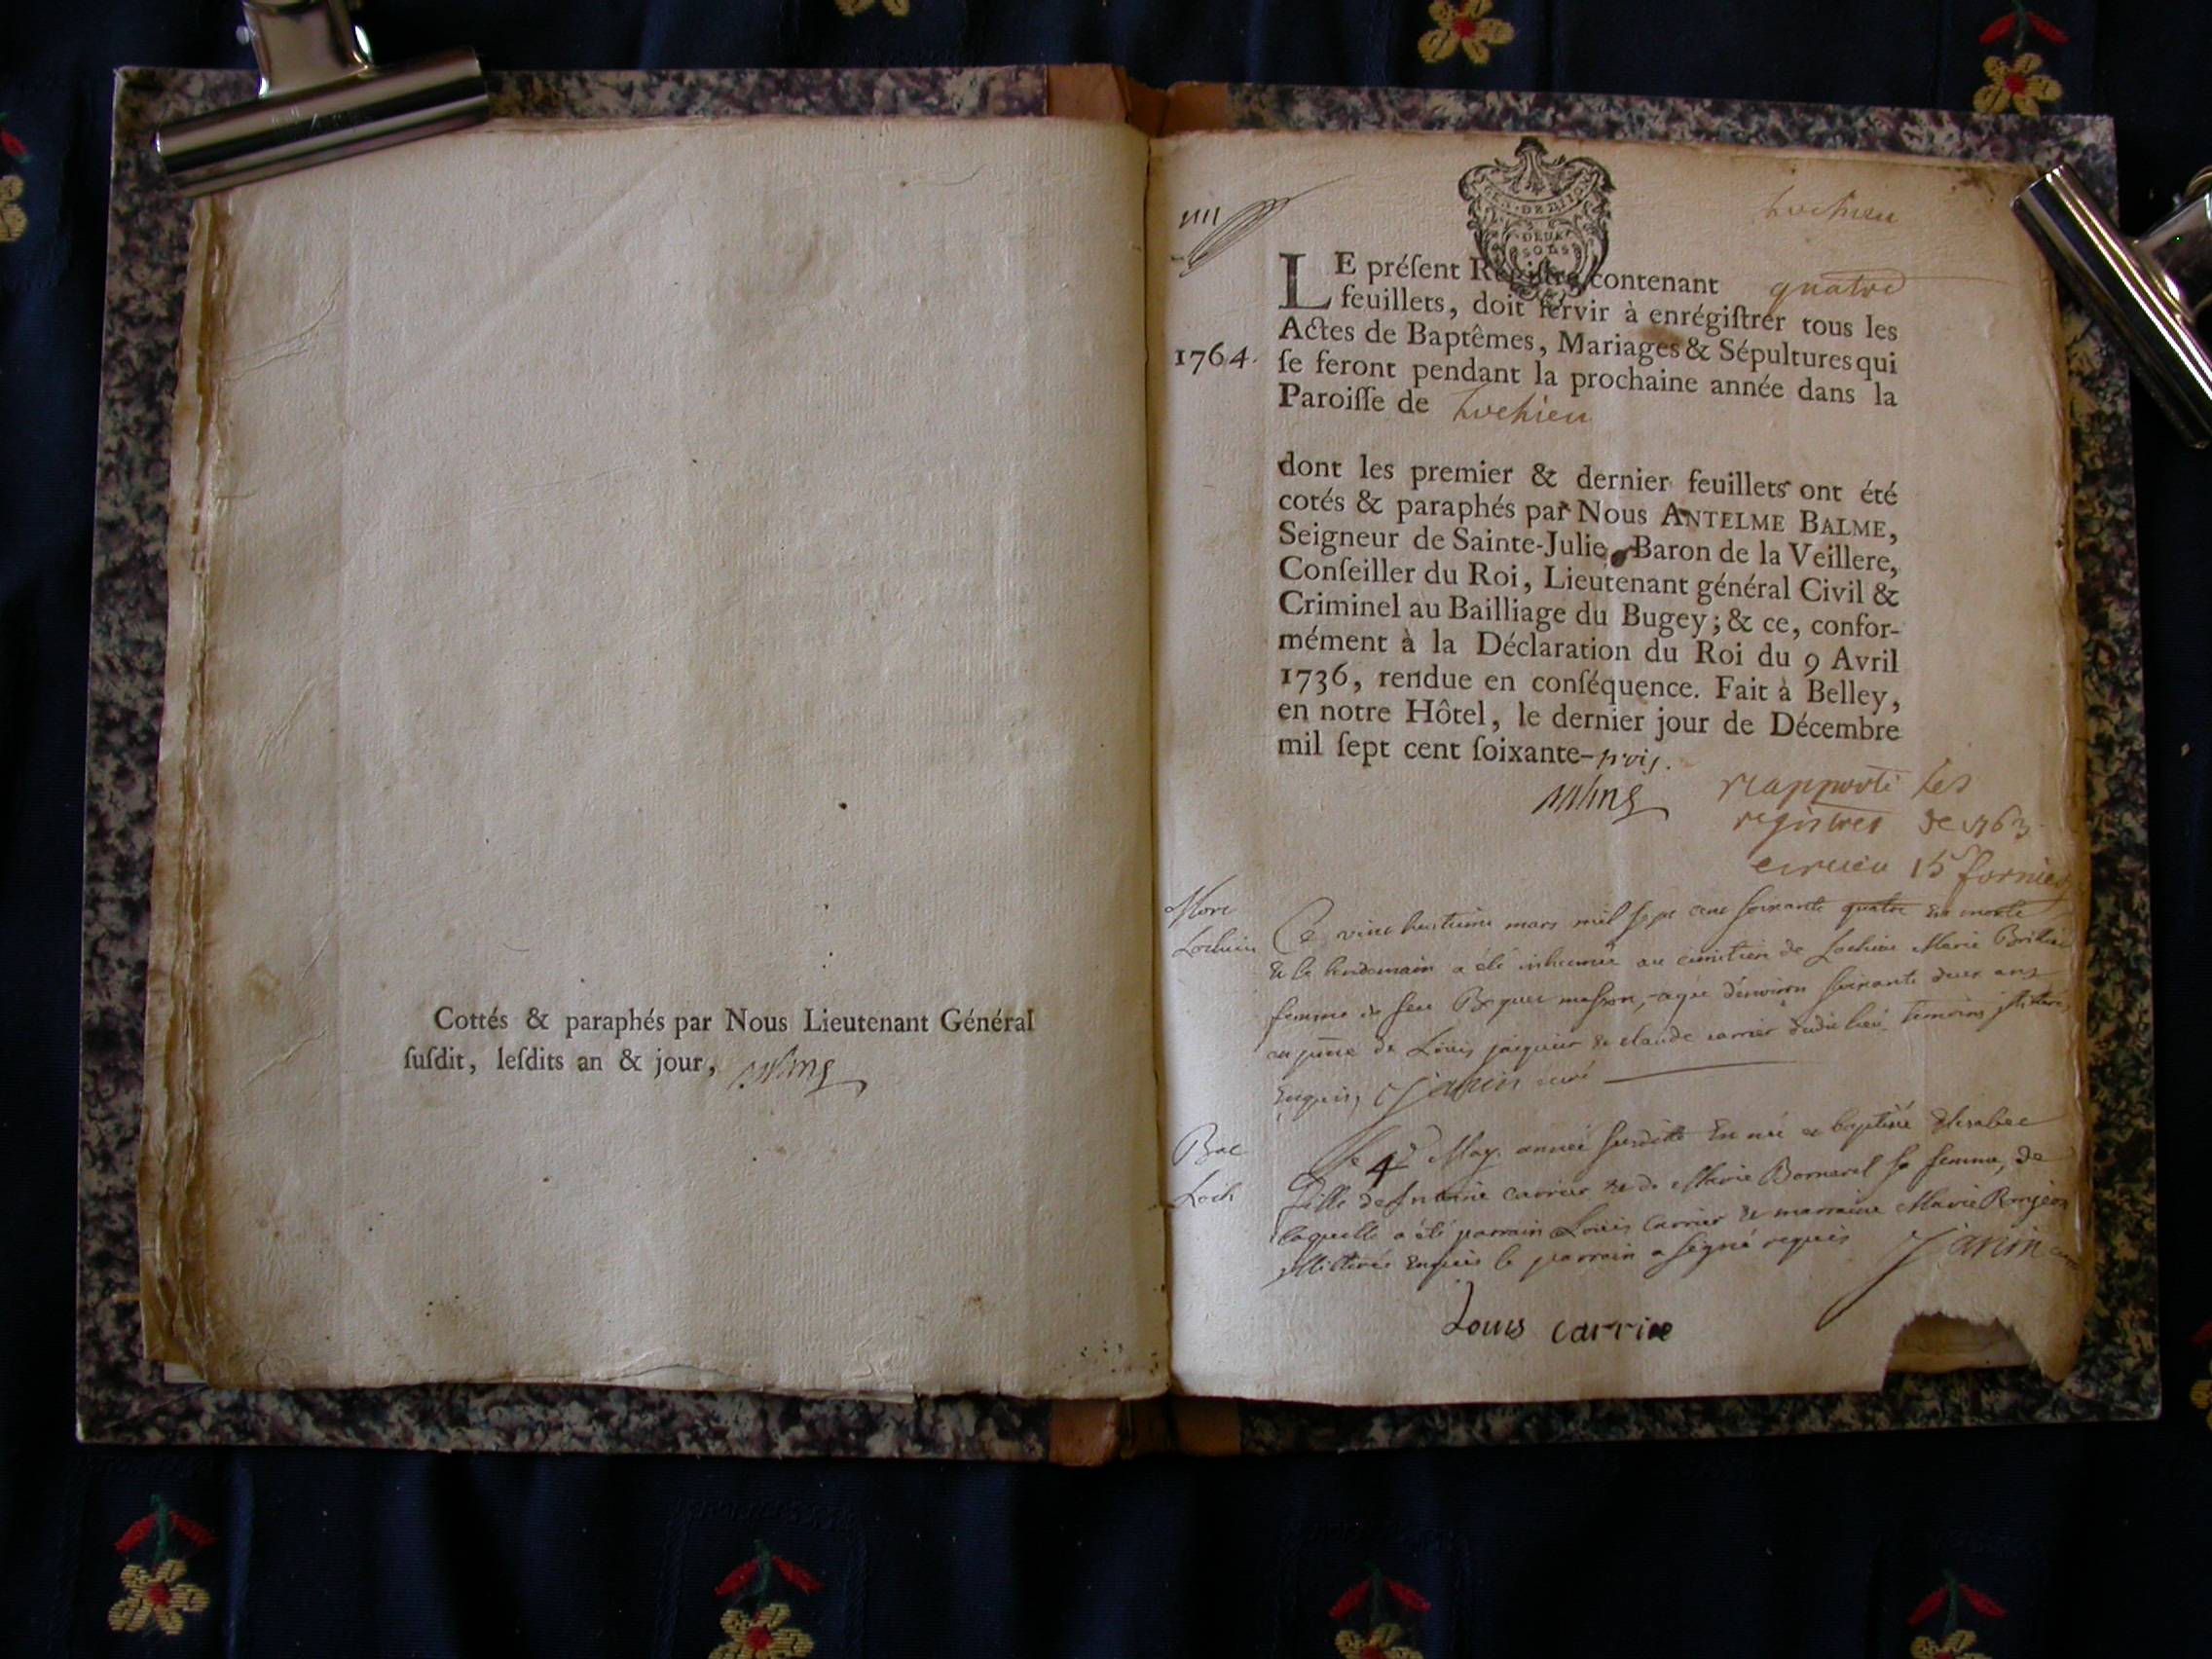 Cottés & paraphés par Nous Lieutenant Général
ſuſdit, leſdits an & jour,
GEN. DE DIJON
DEUX
SOLS
Lochieu
LE préſent Regiſtre contenant quatre
feuillets, doit ſervir à enrégiſtrer tous les
Actes de Baptêmes, Mariages & Sépultures qui
1764. ſe feront pendant la prochaine année dans la
Paroiſſe de Lochieu
dont les premier & dernier feuillets ont été
cotés & paraphés par Nous ANTELME BALME,
Seigneur de Sainte-Julie, Baron de la Veillere,
Conſeiller du Roi, Lieutenant général Civil &
Criminel au Bailliage du Bugey; & ce, confor-
mément à la Déclaration du Roi du 9 Avril
1736, rendue en conſéquence. Fait à Belley,
en notre Hôtel, le dernier jour de Décembre
mil ſept cent ſoixante-trois.
rapporté les
registres de 1763
15
Mort
Lochieu
Ce vint huitieme mars mil sept cent soixante quatre est morte
& le lendemain a été inhumée au cimetiere de Lochieu Marie
femme de feu masson, agée d'environ soixante deux ans
en de Louis jacquier & claude carrier dudit lieu temoins
enquis, Janin curé
Bat
Loch
Le 4e May année susditte est née et baptisée Elisabet
fille de carrier & de Marie Bornarel sa femme, de
laquelle a été parrain Louis Carrier & marraine Marie
enquis le parrain a signé requis Janin
Louis carrier